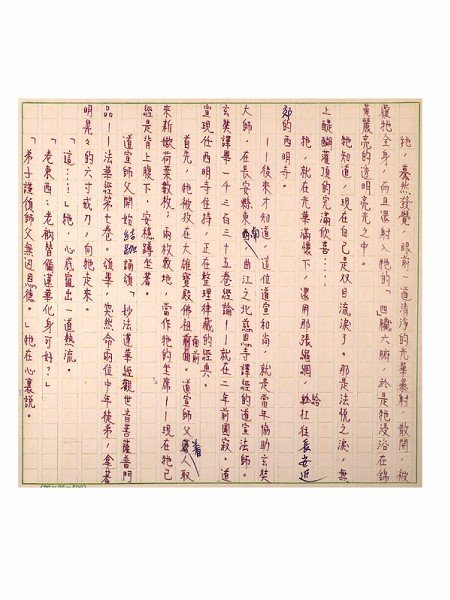 牠，驀然發覺，眼前一道清淨的光華暴射，散開，被
覆牠全身，而且還射入牠的「四臟六腑，於是牠浸浴在錦
黃麗亮的透明亮光之中。
牠知道，現在自己是双目流淚了。那是法悅之淚，無
上醍醐灌頂的完滿欣喜……
牠，就在光華滿懷下，還用那張繩網，給扛往長安近
郊的西明寺。
——後來才知道，這位道宣和尚，就是當年協助玄奘
大師，在長安縣東南曲江之北慈恩寺譯經的道宣法師。
玄奘譯畢一千三百三十五卷經論——就在二年前圓寂。道
宣現仕西明寺住持，正在整理律藏的經典。
首先，牠被放在大雄寶殿佛祖前面前。道宣師父着人取
來新嫩荷葉數枚，兩枚敷地，當作牠的坐席——現在牠已
經是背上腹下，安穩蹲坐着。
道宣師父開始結跏誦頌「妙法蓮華經觀世音菩薩普門
品——法華經第七卷。頌畢，突然命兩位中年徒弟，拿着
明晃々的六寸戒刀，向牠走來。
「這……」牠，心底竄出一道熱流。
「老東西：老衲替儞蓮華化身可好？」
「弟子謹領師父無边恩德。」牠在心裏說。